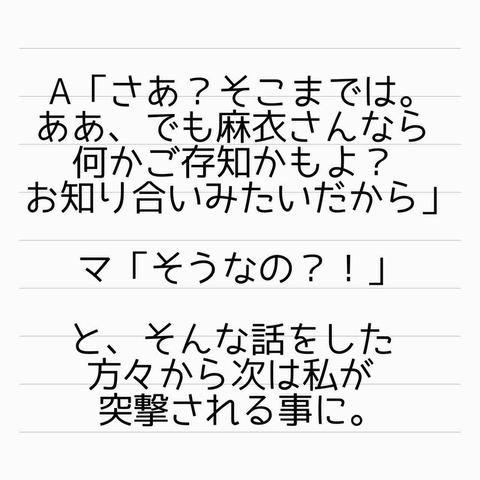 A「さあ？そこまでは。
ああ、でも麻衣さんなら
何かご存知かもよ？
お知り合いみたいだから」
マ「そうなの？！」
と、そんな話をした
方々から次は私が
突撃される事に。